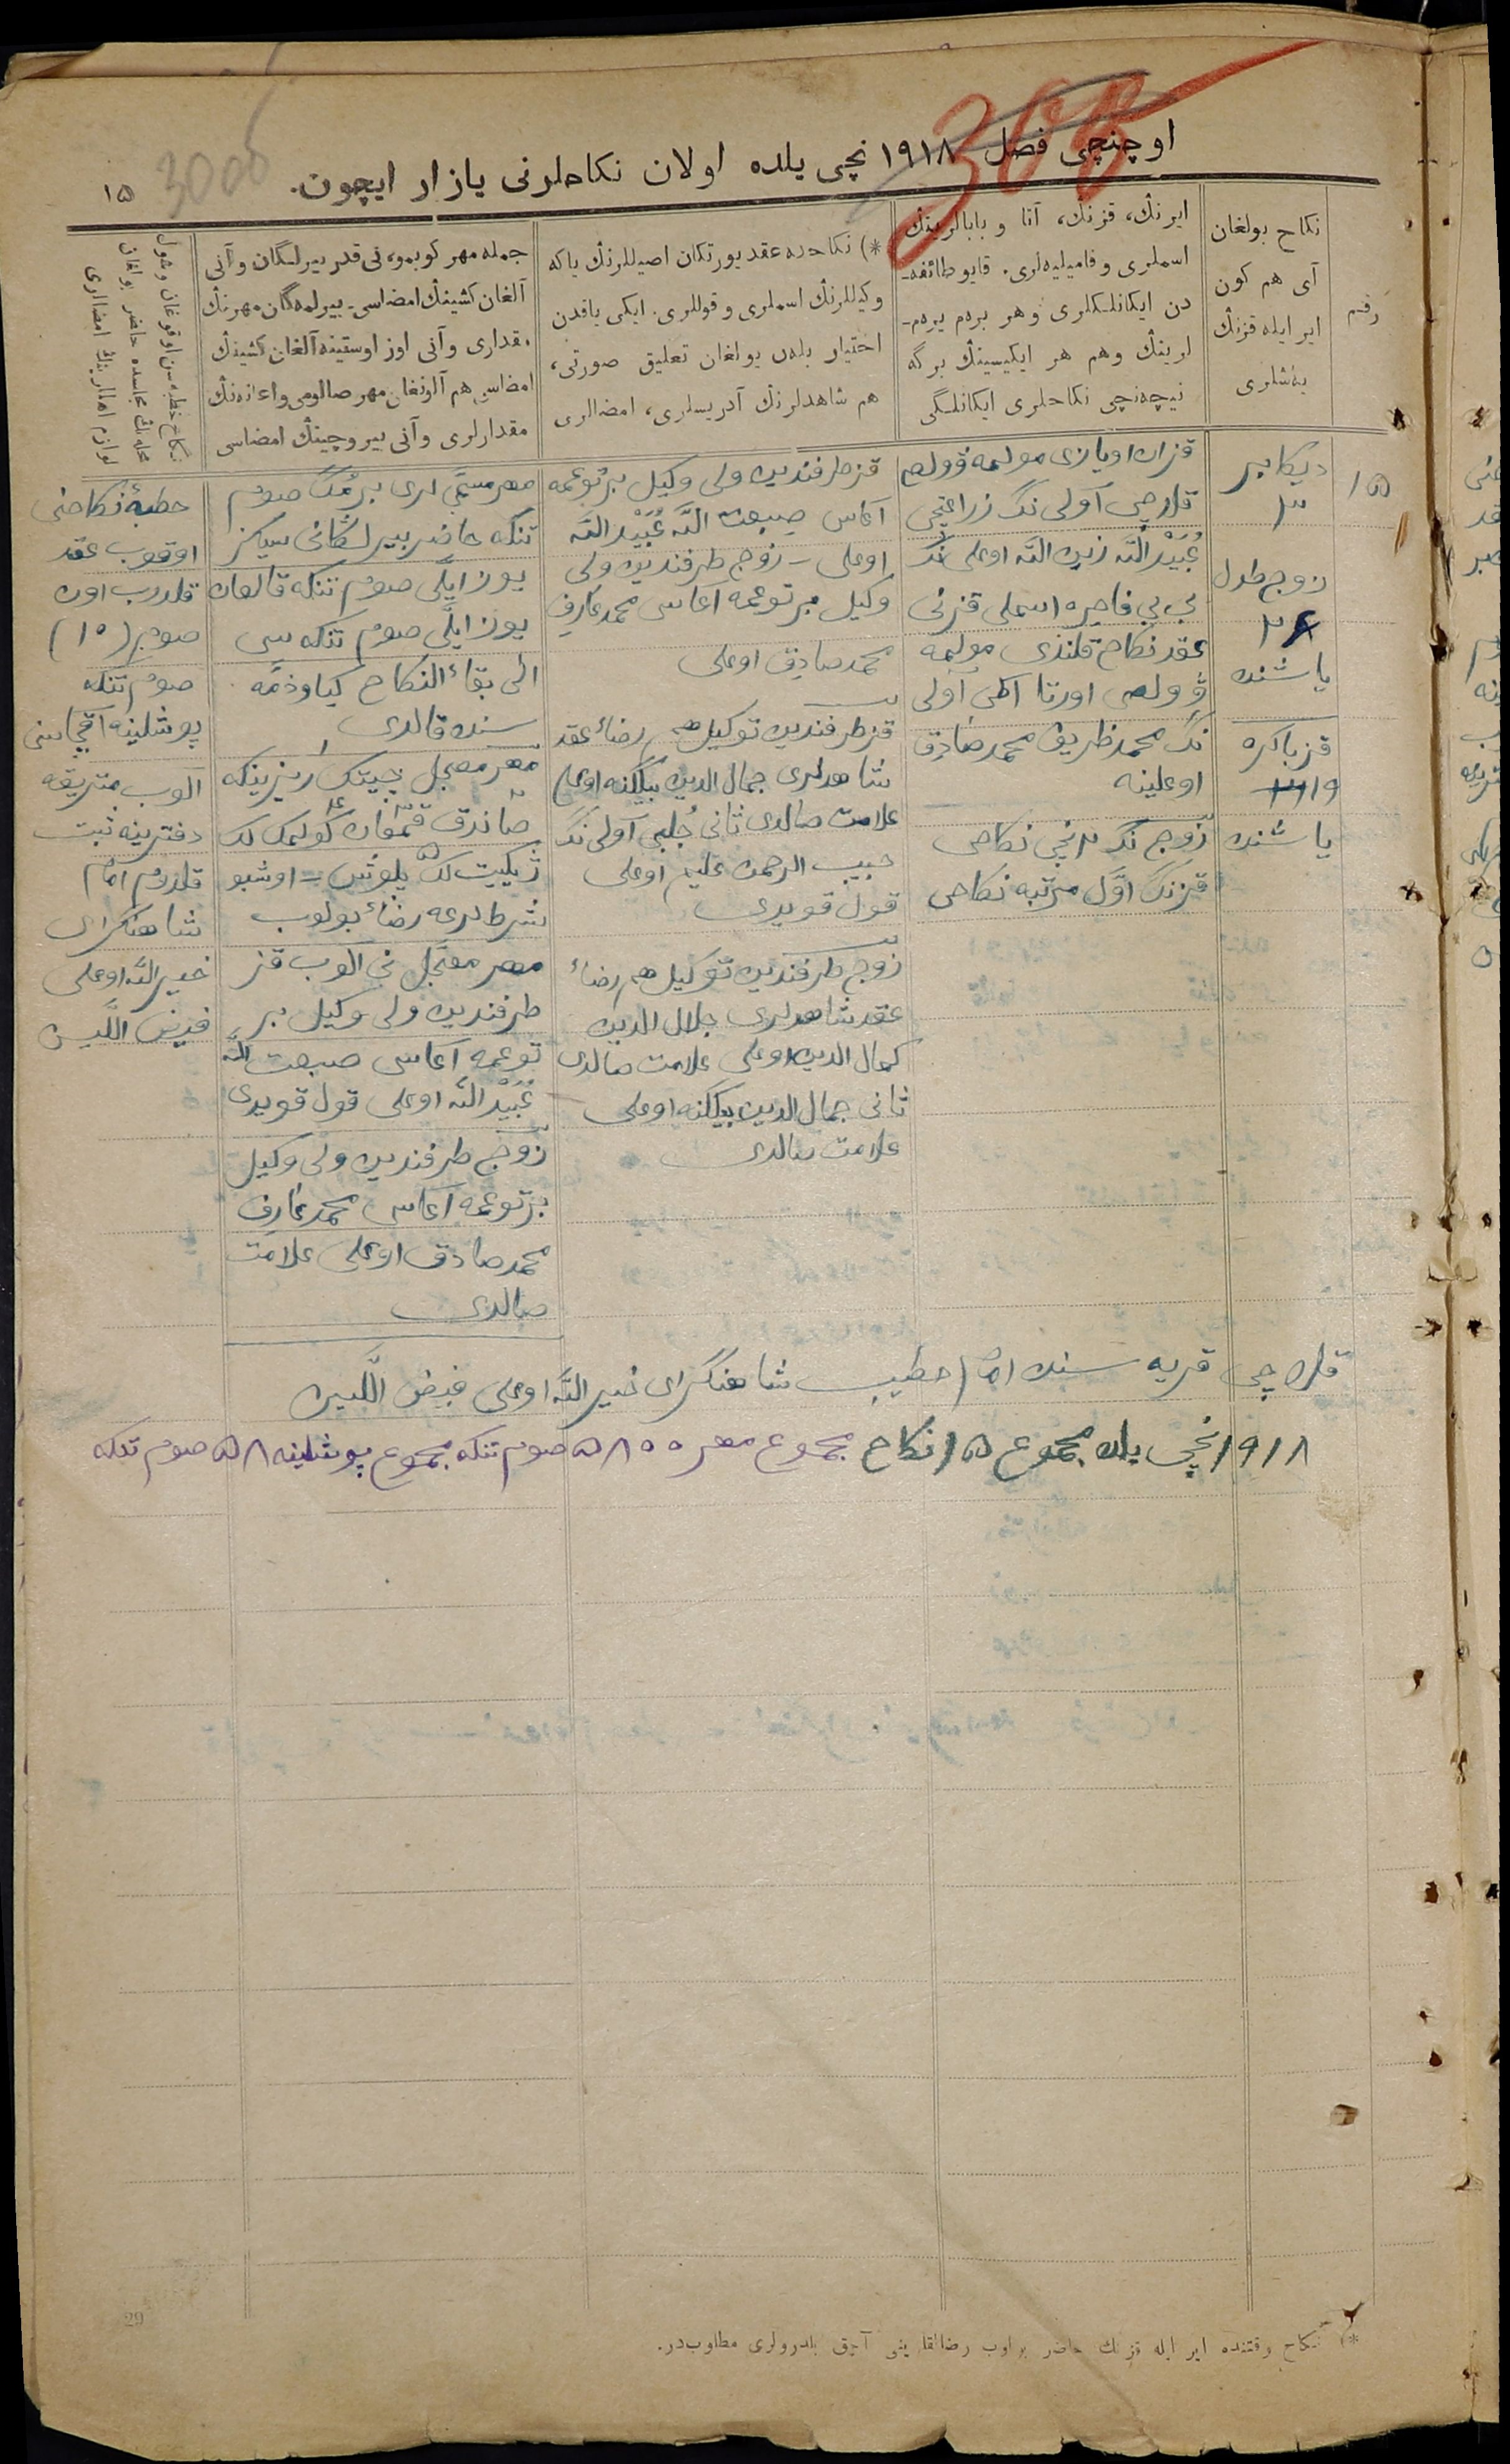 308
3000
اوچنچی فصل ١٩١٨ نچی یلده اولان نکاحلرنی یازار ایچون.
١٥
رقم
نکاح بولغان
آی هم کون
ایر ایله قزنڭ
یەشلری
ایرنڭ، قزنڭ، آتا و بابالرینڭ
اسملری و فامیلیەلری. قایو طائفه‌ـ
دن ایکانلکلری و هر برم یرم‌ـ
لرینڭ وهم هر ایکیسینڭ برگه
نیچەنچی نکاحلری ایکانلگی
*) نکاحده عقد یورتکان اصیللرنڭ یاکه
وکیللرنڭ اسملری و قوللری. ایکی یاقدن
اختیار بلەن بولغان تعلیق صورتی،
هم شاهدلرنڭ آدریسلری، امضالری
جمله مهر کوبمو، نی قدر بیرلگان و آنی
آلغان کشینڭ امضاسی ـ بیرلمەگان مهرنڭ
مقداری و آنی اوز اوستینه آلغان کشینڭ
امضاسی هم آلونغان مهر صالومی و اعانەنڭ
مقدارلری و آنی بیروچینڭ امضاسی
نیکاح خطبەسن اوقوغان و شول
محلەنڭ مجلسده حاضر بولغان
لوازم اهللرینڭ امضالری
١٥
دیکابر
١٣
زوج طول
٢٤
یاشنده
قز باکره
١٩
یاشنده
قزان اویازی مولمه وولصی
قلرچی آولی نڭ زراعتچی
عُبَیْدالله زین الله اوغلی نڭ
بی بی فاخره اسملی قزنی
عقد نکاح قلندی مولمه
وولصی اورتا اطی آولی
نڭ محمد ظریف محمد صادق
اوغلینه
زوج نڭ ٢نچی نکاحی
قزنڭ اوّل مرتبه نکاحی
قز طرفندین ولی وکیل برتوغمه
آغاسی صبغت الله عُبَیْدالله
اوغلی ـ زوج طرفندین ولی
وکیل برتوغمه آغاسی محمد عارف
محمد صادق اوغلی
قز طرفندین توکیل هم رضاء عقد
شاهدلری جمال الدین بیکنه اوغلی
علامت صالدی ثانی چُلپی آولی نڭ
حبیب الرحمن علیم اوغلی
قول قویدی
زوج طرفندین توکیل هم رضاء
عقد شاهدلری جلال الدین
کمال الدین اوغلی علامت صالدی
ثانی جمال الدین بیکنه اوغلی
علامت صالدی
مهر مسمّی لری بر مڭ صوم
تنکه حاضر بیرلگانی سیکز
یوز ایللی صوم تنکه قالغان
یوز ایللی صوم تنکه سی
الی بقاء النکاح کیاو ذمّه
سنده قالدی
مهر معجل چیتک ریزینکه
صاندق کولمک لک
اوشبو
شرط لرغه رضاء بولوب
مهر معجّل نی آلوب قز
طرفندین ولی وکیل بر
توغمه آغاسی صبغت الله
عُبَیْدالله اوغلی قول قویدی
زوج طرفندین ولی وکیل
برتوغمه آغاسی محمد عارف
محمد صادق اوغلی علامت
صالدی
خطبهٔ نکاحنی
اوقوب عقد
قلدرب اون
صوم (١٥)
صوم تنکه
پوشلینه آقچاسنی
آلوب متریقه
دفترینه ثبت
قلدم امام
شاهنگرای
خیرالله اوغلی
فیض اللّین
قلرچی قریه سنده امام خطیب شاهنگرای خیرالله اوغلی فیض اللّین
١٩١٨نچی یلده مجموع ١٥ نکاح مجموع مهر ٥٨٥٥ صوم تنکه مجموع پوشلینه ٥٨ صوم تنکه
29
*) نکاح وقتنده ایر ایله قزنڭ حاضر بولوب رضالقلرینی آچق بلدرولری مطلوبدر.